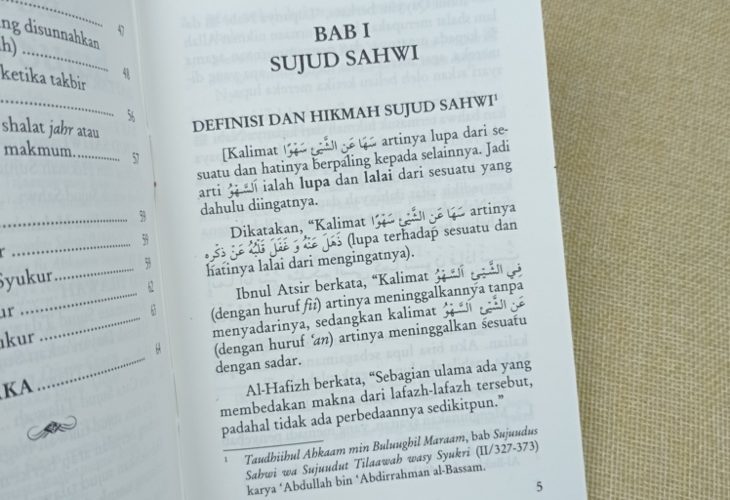 ng disunnahkan
ah) 47
ketika takbir 48
56
shalat jahr atau
makmum 57
59
r 59
Syukur 59
ur 62
ukur 63
KA 64
BAB I
SUJUD SAHWI
DEFINISI DAN HIKMAH SUJUD SAHWI¹
[Kalimat سَهَا عَنِ الشَّيْئِ سَهْوًا artinya lupa dari se-
suatu dan hatinya berpaling kepada selainnya. Jadi
arti اَلسَّهْوُ ialah lupa dan lalai dari sesuatu yang
dahulu diingatnya.
Dikatakan, “Kalimat سَهَا عَنِ الشَّيْئِ سَهْوًا artinya
ذَهَلَ عَنْهُ وَ غَفَلَ قَلْبُهُ عَنْ ذِكْرِهِ (lupa terhadap sesuatu dan
hatinya lalai dari mengingatnya).
Ibnul Atsir berkata, “Kalimat فِي الشَّيْئِ اَلسَّهْوُ
(dengan huruf fii) artinya meninggalkannya tanpa
menyadarinya, sedangkan kalimat عَنِ الشَّيْئِ اَلسَّهْوُ
(dengan huruf ‘an) artinya meninggalkan sesuatu
dengan sadar.
Al-Hafizh berkata, “Sebagian ulama ada yang
membedakan makna dari lafazh-lafazh tersebut,
padahal tidak ada perbedaannya sedikitpun.”
¹ Taudhiihul Ahkaam min Buluughil Maraam, bab Sujuudus
Sahwi wa Sujuudut Tilaawah wasy Syukri (II/327-373)
karya ‘Abdullah bin ‘Abdirrahman al-Bassam.
5